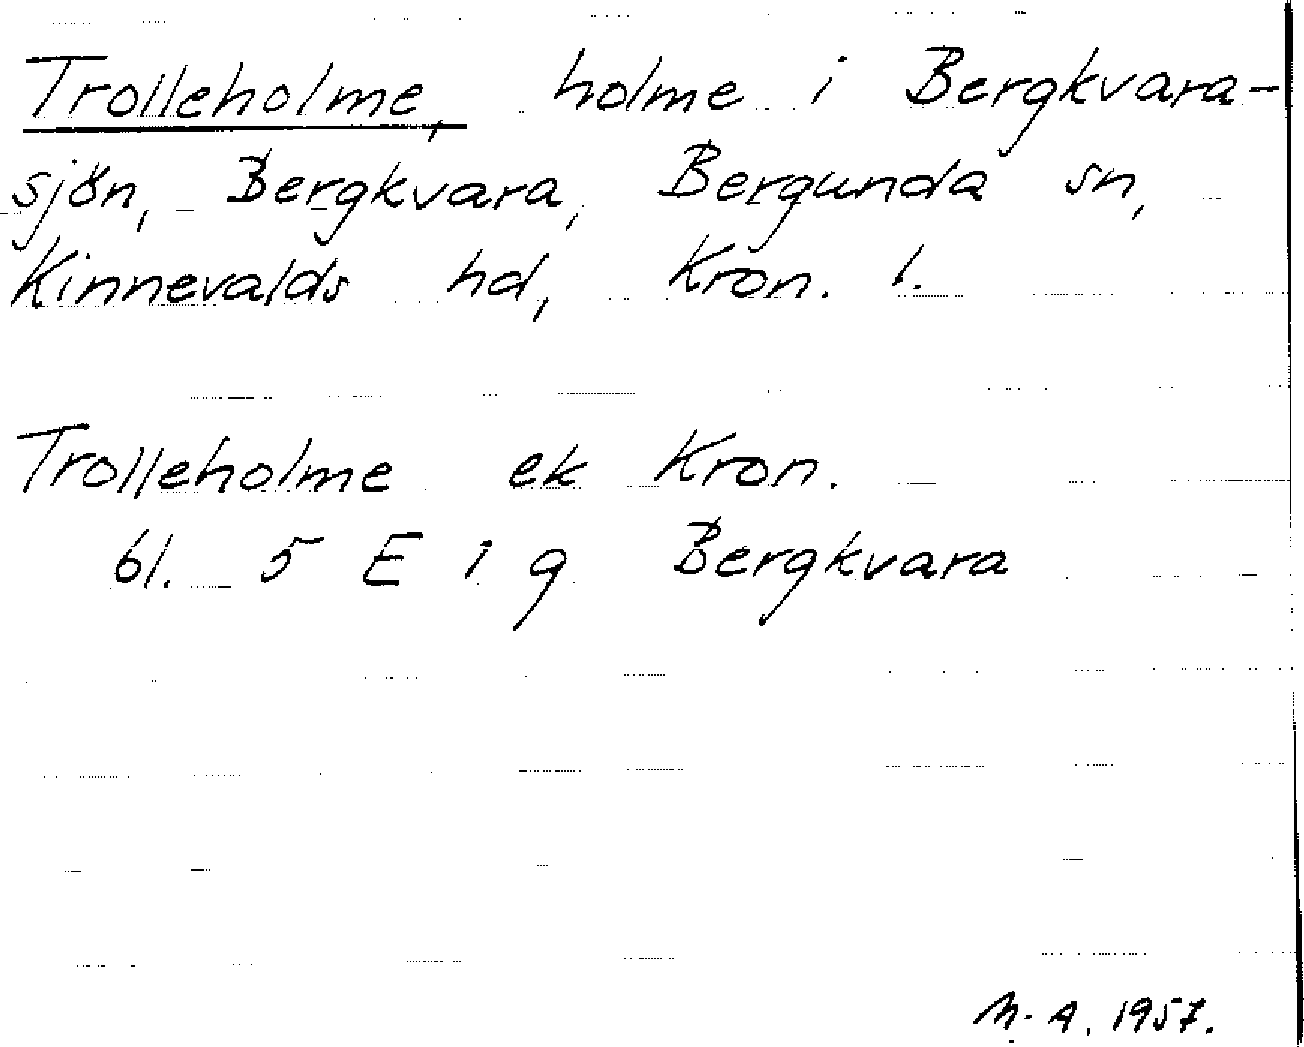 Trolleholme, holme i Bergkvara-
sjön, Bergkvara, Bergunda sn,
Kinnevalds hd, Kron. l.
Trolleholme ek Kron.
bl. 5 E i g Bergkvara
M. A. 1957.